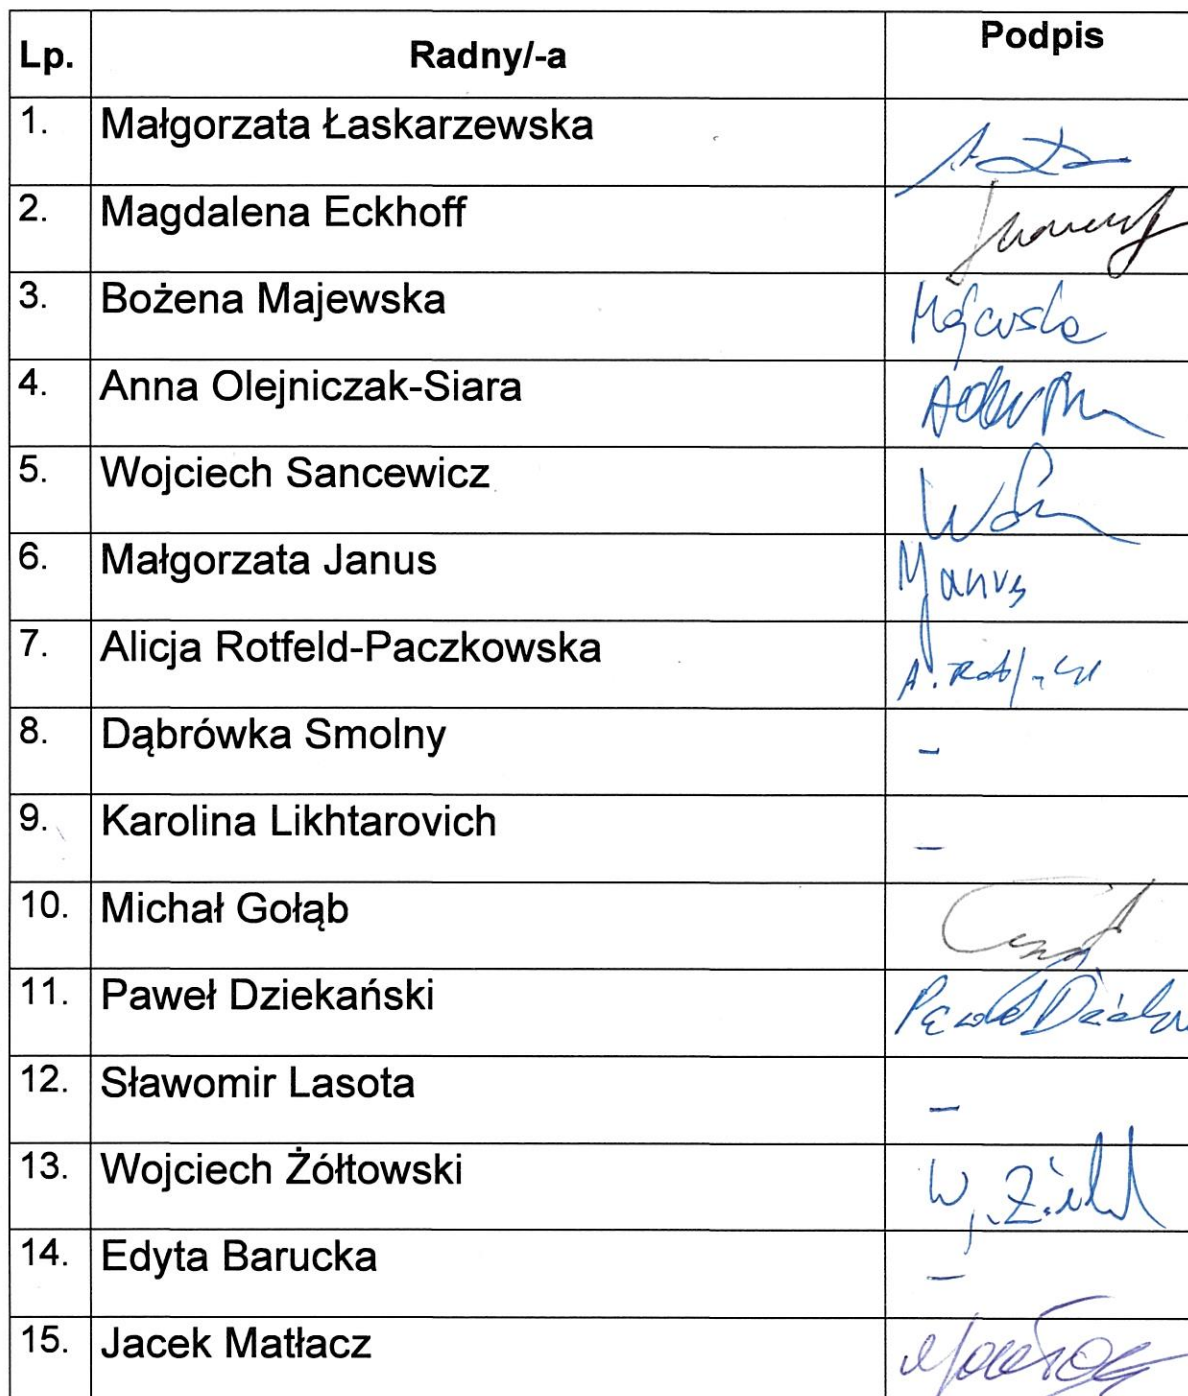 Lp. Radny/-a Podpis
1. Małgorzata Łaskarzewska
2. Magdalena Eckhoff
3. Bożena Majewska Majewska
4. Anna Olejniczak-Siara
5. Wojciech Sancewicz
6. Małgorzata Janus MJanus
7. Alicja Rotfeld-Paczkowska A.
8. Dąbrówka Smolny -
9. Karolina Likhtarovich -
10. Michał Gołąb
11. Paweł Dziekański Paweł
12. Sławomir Lasota -
13. Wojciech Żółtowski W.
14. Edyta Barucka -
15. Jacek Matłacz